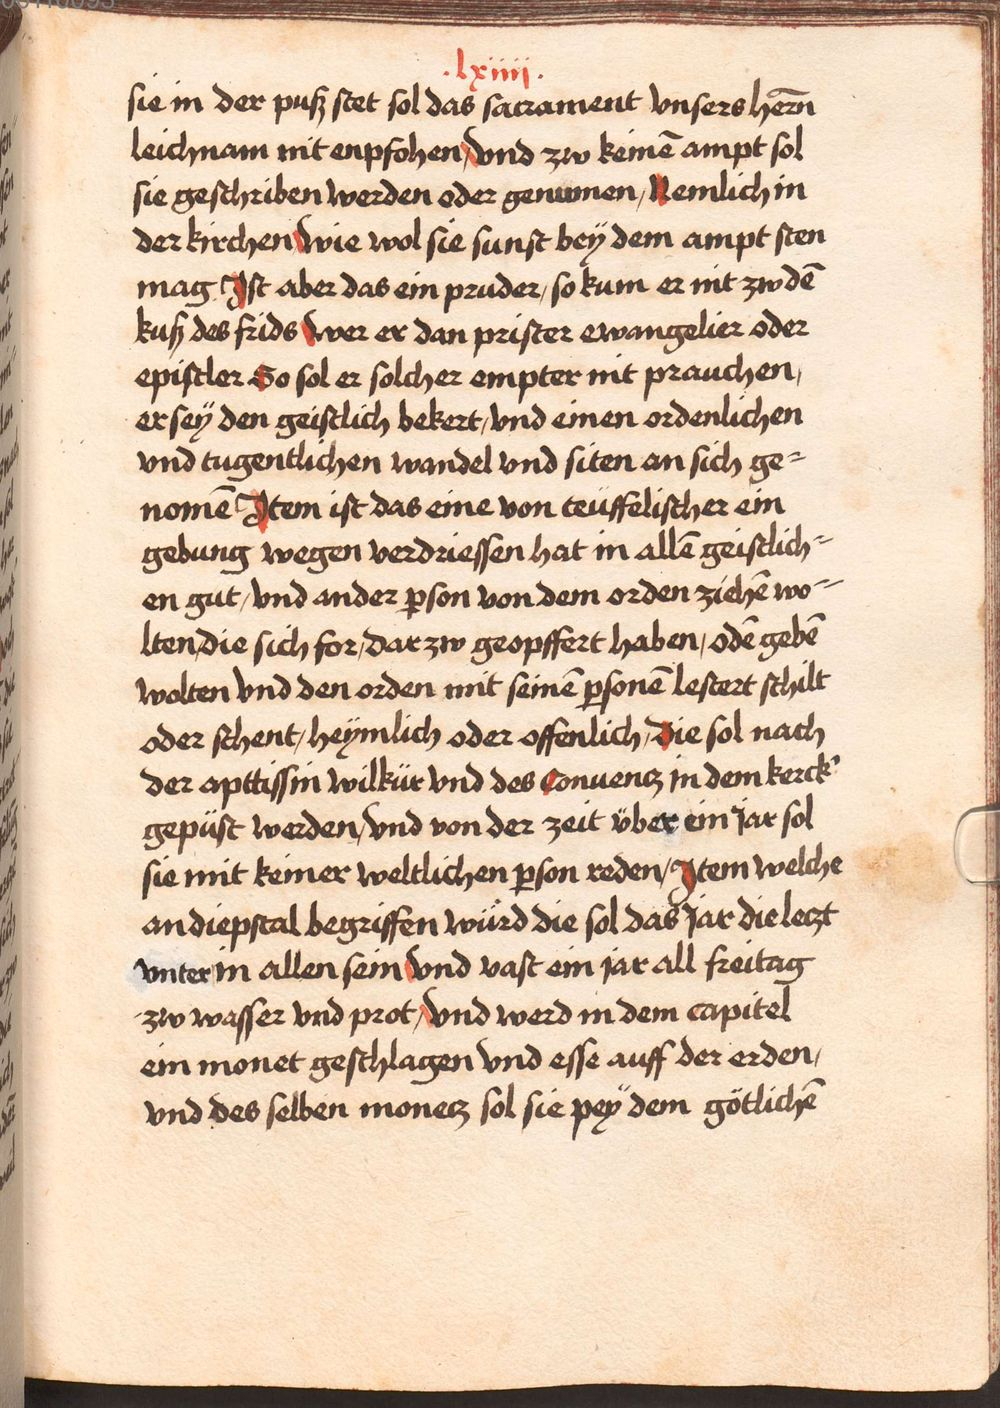 .lxiiii.
sie in der puß stet sol das sacrament vnsers hern̄
leichnam nit enpfohen/ Vnd zw keinē ampt sol
sie geschriben werden oder genumen/ Nemlich in
der kirchen Wie wol sie sunst beÿ dem ampt sten
mag Ist aber das ein pruder/ so kum er nit zw dē
kuß des frids Wer er dan prister ewangelier oder
epistler So sol er solcher empter nit prauchen/
er seÿ den geistlich bekert/ vnd einen ordenlichen
vnd tugentlichen wandel vnd siten an sich ge=
nomē Item ist das eine von teüffelischer ein
gebung wegen verdriessen hat in allē geistlich=
en gut/ vnd ander p̲son von dem orden ziehē wo=
lten/ die sich for/ dar zw geopffert haben/ odē gebē
wolten vnd den orden mit seinē p̲sonē lestert schilt
oder schent/ heÿmlich oder offenlich/ Die sol nach
der apttissin wilkür vnd des Conuencz in dem kerck'
gepüst werden/ vnd von der zeit über ein Jar sol
sie mit keiner weltlichen p̲son reden/ Item welche
an diepstal begriffen würd die sol das Jar die leczt
vnter in allen sein Vnd vast ein jar all freitag
zw wasser vnd prot/ Vnd werd in dem capitel
ein monet geschlagen Vnd esse auff der erden/
vnd des selben monecz sol sie peÿ dem götlichē